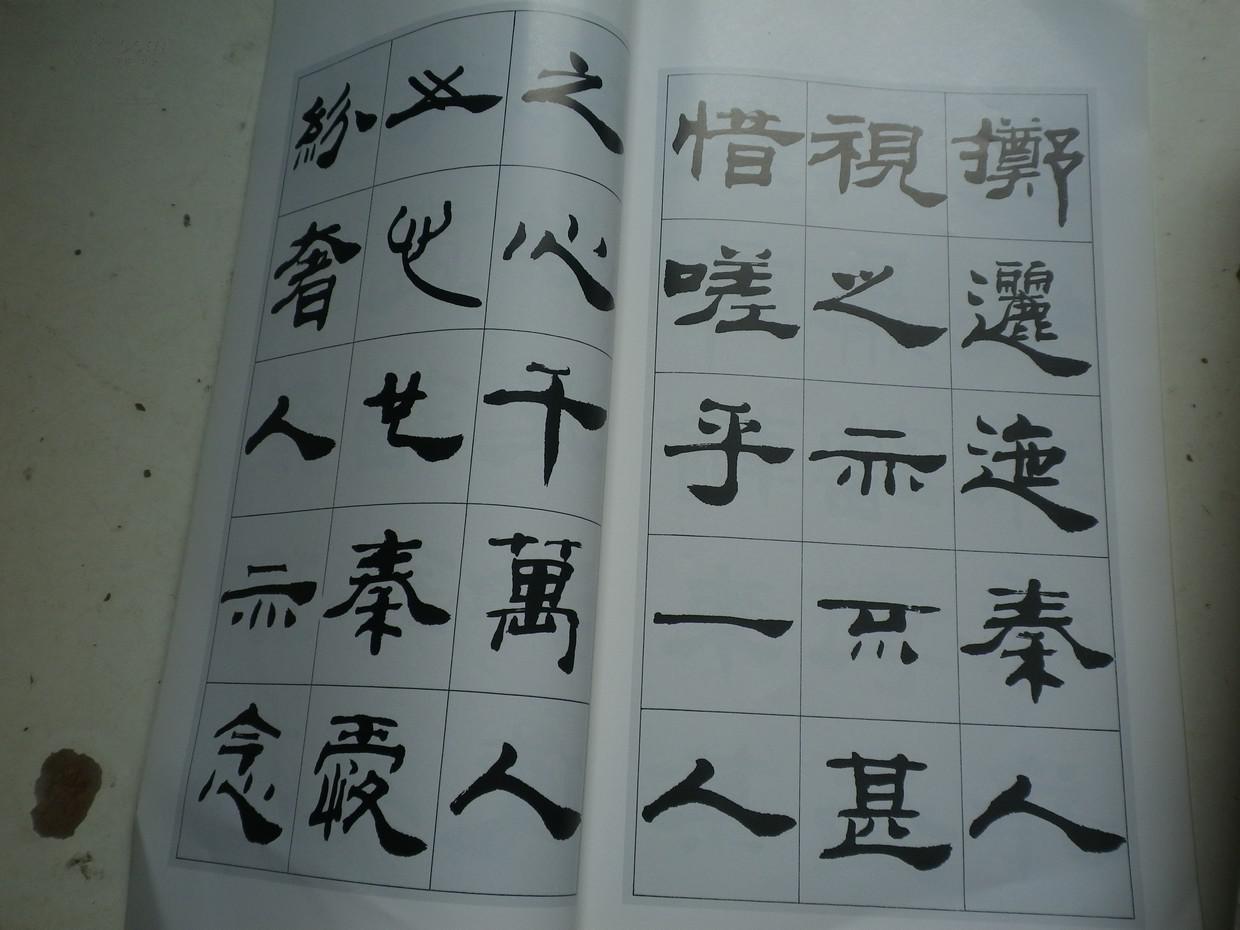 擲邐迤秦人
視之亦不甚
惜嗟乎一人
之心千萬人
之心也秦愛
紛奢人亦念